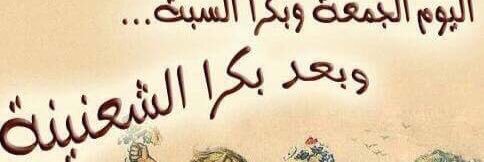 اليوم الجمعة وبكرا السبة...
وبعد بكرا الشعنينة